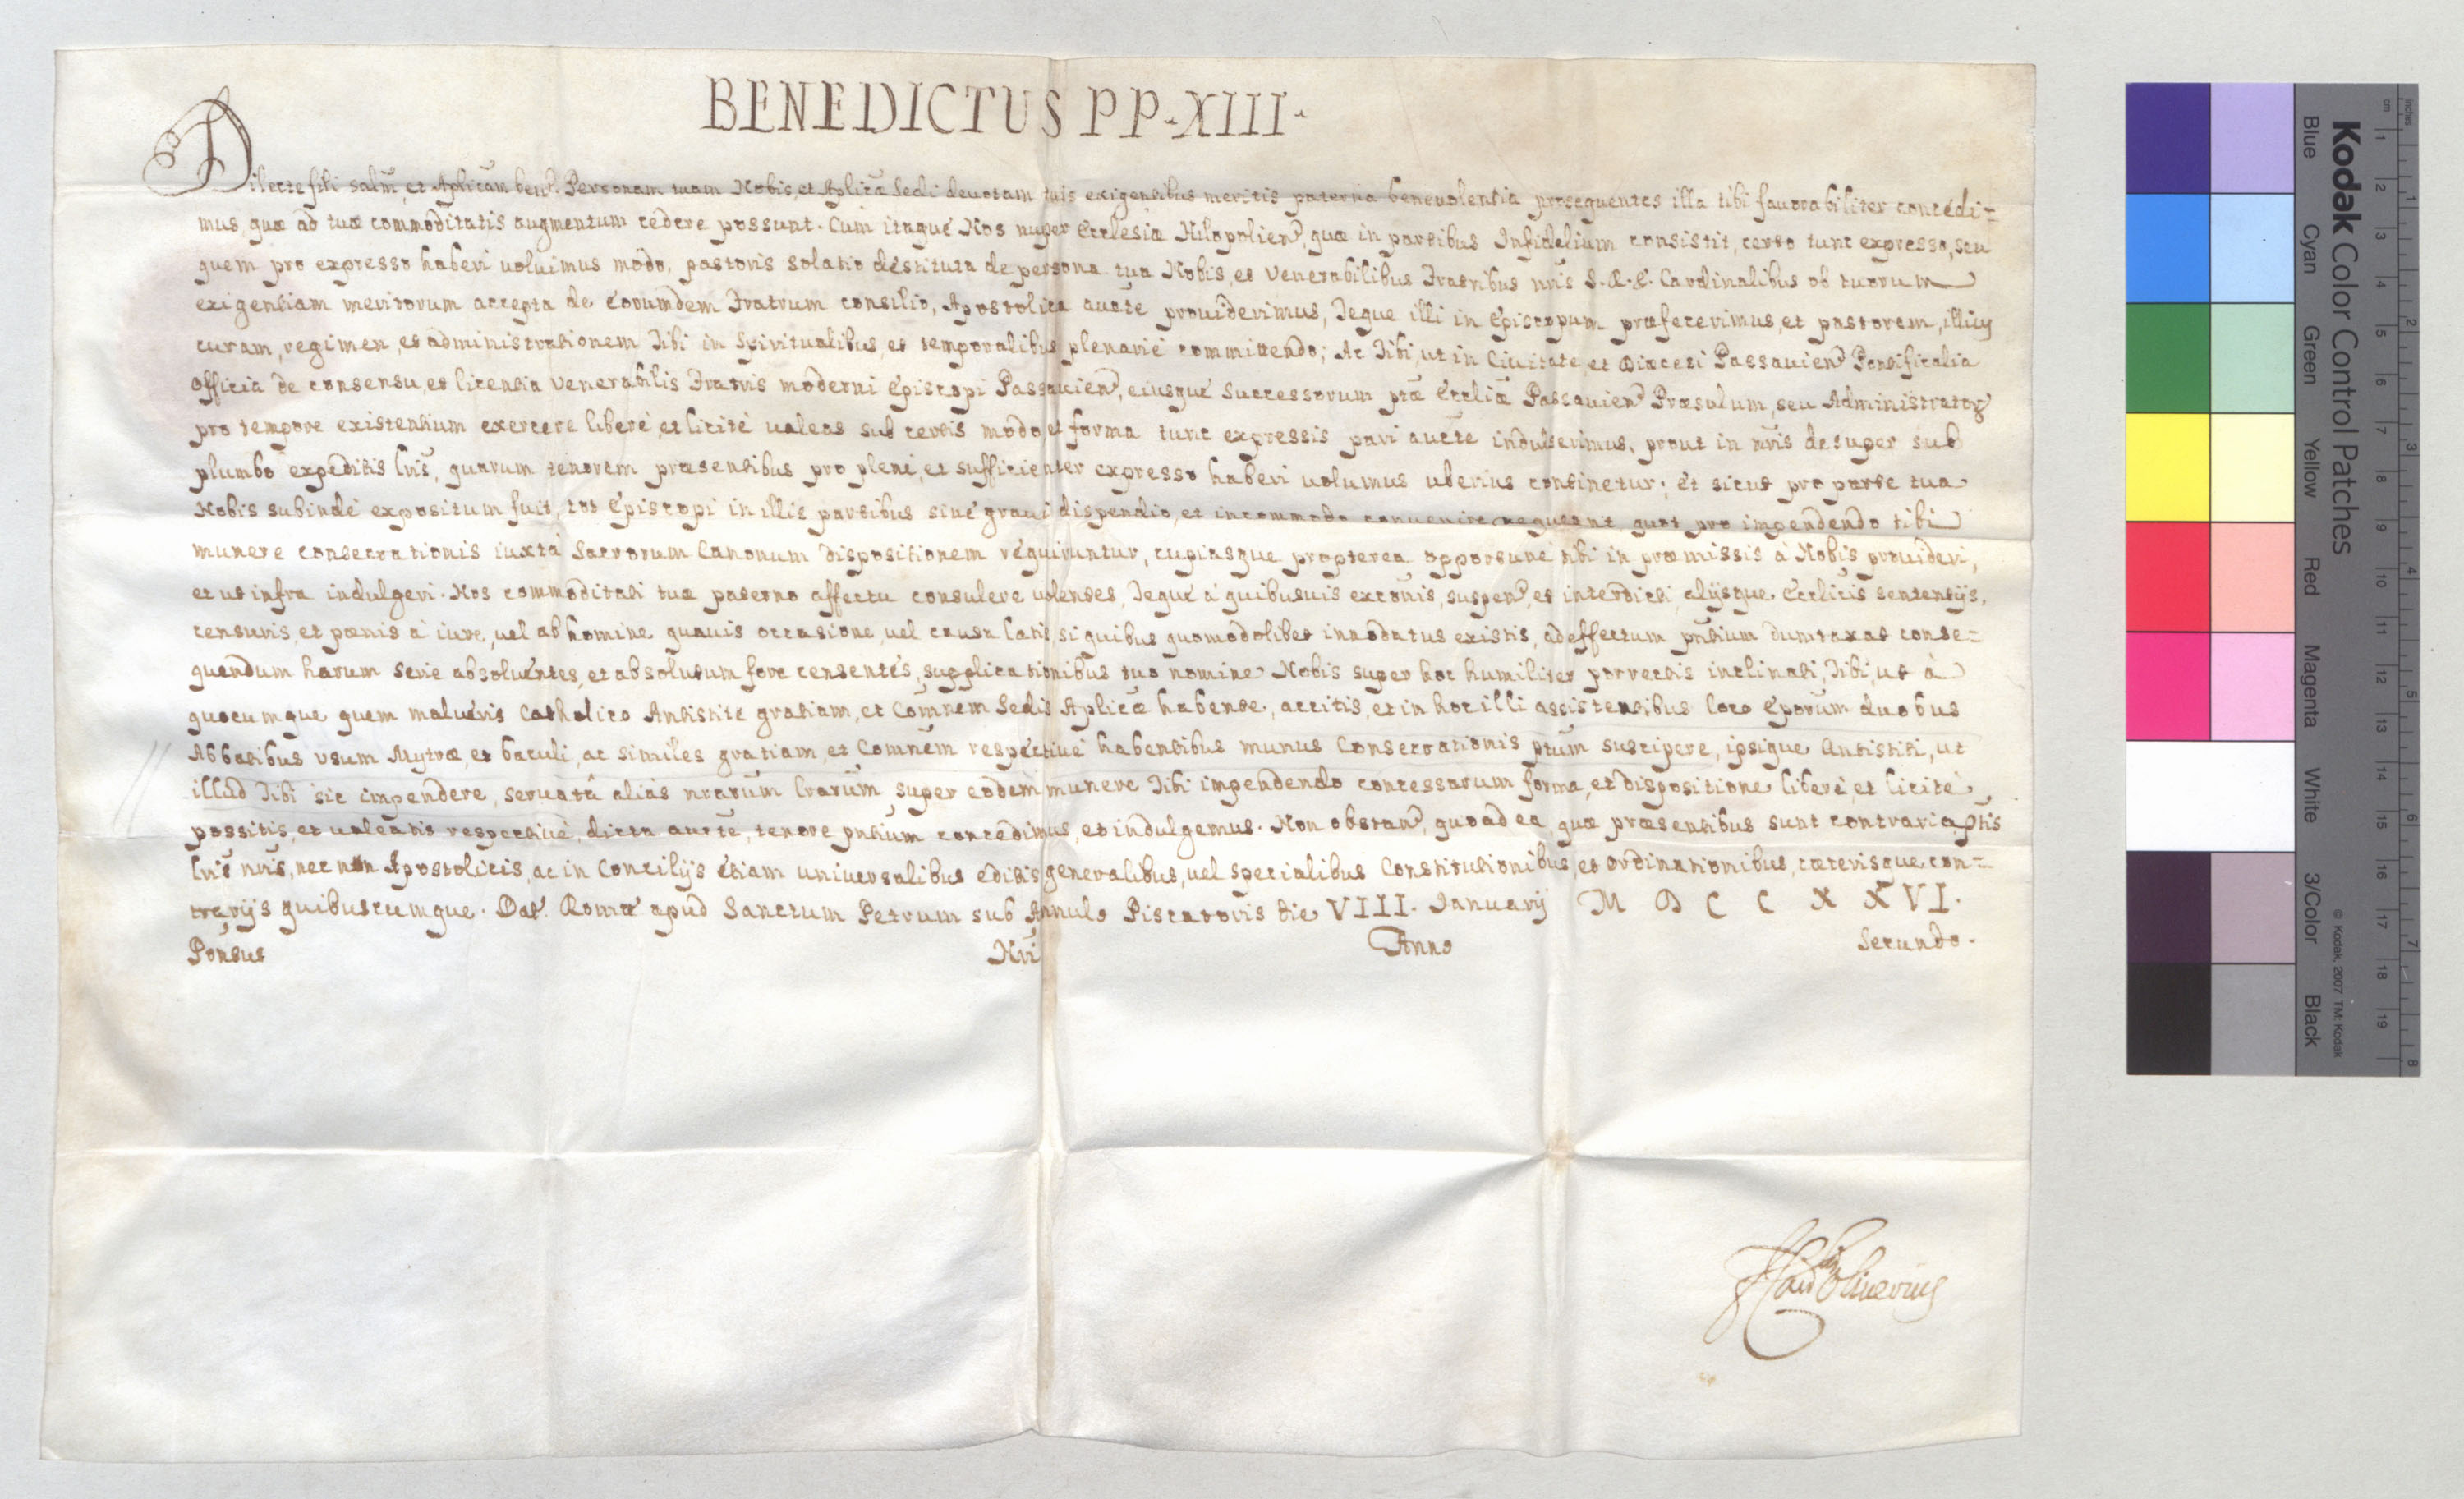 BENEDICTUS PP. XIII.
Dilecte fili salm̃, et Aplicam̃ bend. Personam tuam Nobis, et Aplicæ Sedi devotam tuis exigentibus meritis paterna benevolentia prosequentes illa tibi favorabiliter concedi=
mus, quæ ad tuæ commoditatis augmentum cedere possunt. Cum itaque Nos nuper Ecclesiæ Nilopolien, quæ in partibus Infidelium consistit, certo tunc expresso, seu
quem pro expresso haberi voluimus modo, pastoris solatio destituta de persona tua Nobis, et Venerabilibus Fratribus nris S.R.E. Cardinalibus ob tuorum
exigentiam meritorum accepta de eorumdem Fratrum consilio, Apostolica aucte providerimus, Teque illi in Episcopum præfecerimus, et pastorem, illius
curam, regimen, et administrationem Tibi in Spiritualibus, et temporalibus plenarie committendo; Ac Tibi, ut in Civitate, et Diæcesi Passavien Pontificalia
officia de consensu, et licentia Venerabilis Fratris moderni Episcopi Passavien, eiusque Successorum ptæ Eccliæ Passavien Præsulum, seu Administrator
pro tempore existentium exercere libere, et licite valeas sub certis modo, et forma tunc expressis pari aucte indulserimus, prout in nris desuper sub
plumbo expeditis lris, quarum tenorem præsentibus pro plene, et sufficienter expresso haberi volumus uberius continetur; et sicut pro parte tua
Nobis subinde expositum fuit, tot Episcopi in illis partibus sine gravi dispendio, et incommodo convenire nequeant, quot pro impendendo tibi
munere consecrationis iuxta Sacrorum Canonum dispositionem requiruntur, cupiasque propterea opportune tibi in præmissis à Nobis provideri,
et ut infra indulgeri. Nos commoditati tuæ paterno affectu consulere volentes, Teque à quibusvis exconis, suspen, et interdicti, alijsque Ecclicis sentengijs,
censuris, et pœnis à iure, vel ab homine quavis occasione, vel causa latis, si quibus quomodolibet innodatus existis, ad effectum pntium dumtaxat conse=
quendum harum serie absolventes, et absolutum fore censentes, supplicationibus tuo nomine Nobis super hoc humiliter porrectis inclinati, Tibi, ut à
quocumque quem malueris Catholico Antistite gratiam, et Comnem Sedis Aplicæ habente, accitis, et in hoc illi assistentibus loco Eporum duobus
Abbatibus usum Mytræ, et baculi, ac similes gratiam, et Comnem respective habentibus munus Consecrationis ptum suscipere, ipsique Antistiti, ut
illud Tibi sic impendere, servatâ aliàs nrarum lrarum super eodem munere Tibi impendendo concessarum forma, et dispositione libere, et licite
possitis, et valeatis respective, dicta aucte, tenore pntium concedimus, et indulgemus. Non obstan, quoad ea, quæ præsentibus sunt contraria, ptis
lris nris, nec non Apostolicis, ac in Concilijs etiam universalibus editis generalibus, vel specialibus Constitutionibus, et ordinationibus, cæterisque con=
trarijs quibuscumque. Dat. Romæ apud Sanctum Petrum sub Annulo Piscatoris die VIII. Januarij M D C C X X VI.
Pontus Nri Anno Secundo.
Kodak Color Control Patches
Blue Cyan Green Yellow Red Magenta White 3/Color Black
© Kodak, 2007 TM: Kodak
inches 1 2 3 4 5 6 7 8
cm 1 2 3 4 5 6 7 8 9 10 11 12 13 14 15 16 17 18 19